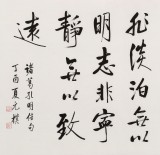 非淡泊無以
明志非寧
靜無以致
遠
諸葛孔明信句
丁酉夏元樸